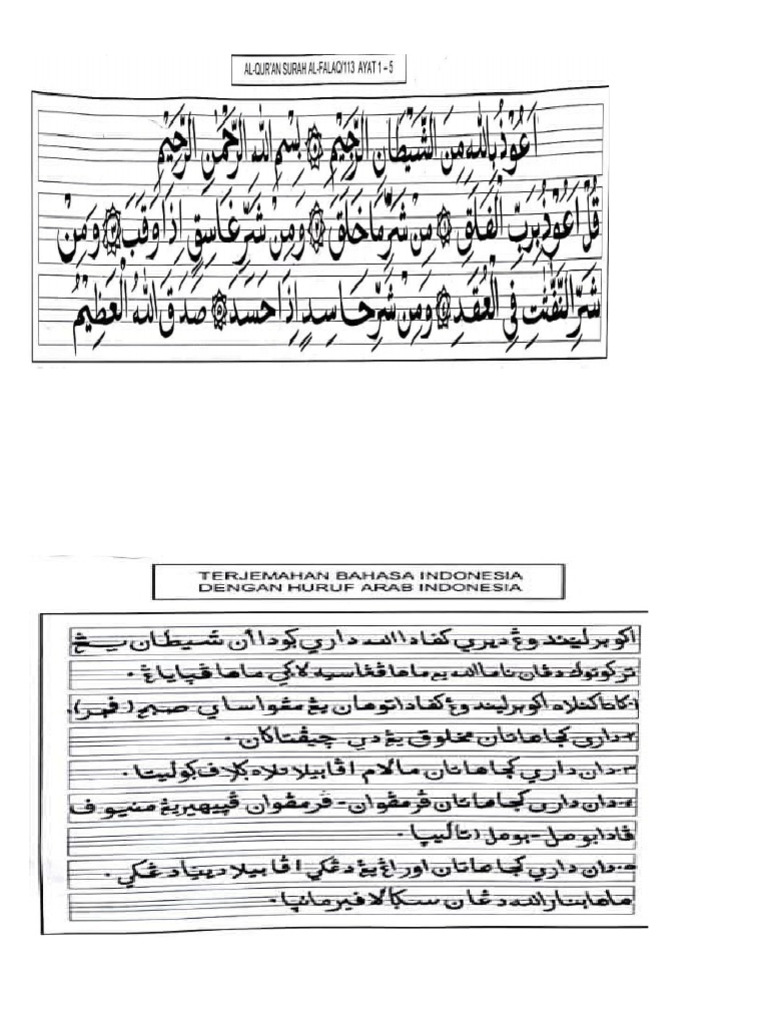 AL-QUR'AN SURAH AL-FALAQ/113 AYAT 1 – 5
اَعُوْذُ بِاللّٰهِ مِنَ الشَّيْطَانِ الرَّجِيْمِ ۝١ بِسْمِ اللّٰهِ الرَّحْمٰنِ الرَّحِيْمِ
قُلْ اَعُوْذُ بِرَبِّ الْفَلَقِ ۝١ مِنْ شَرِّ مَا خَلَقَ ۝٢ وَمِنْ شَرِّ غَاسِقٍ اِذَا وَقَبَ ۝٣ وَمِنْ
شَرِّ النَّفّٰثٰتِ فِى الْعُقَدِ ۝٤ وَمِنْ شَرِّ حَاسِدٍ اِذَا حَسَدَ ۝٥ صَدَقَ اللّٰهُ الْعَظِيْمُ
TERJEMAHAN BAHASA INDONESIA
DENGAN HURUF ARAB INDONESIA
اكو برليندوڠ ديري كفادا الله داري ݢودا أن شيطان يڠ
تركوتوك دڠان ناما الله يڠ ماها ڤڠاسيه لاݢي ماها ڤپاياڠ ٠
١-كاتاكنلاه اكو برليندوڠ كفادا توهان يڠ مڠواساي صبح (فجر).
٢-داري كجاهاتان مخلوق يڠ دي چيڤتاكان ٠
٣-دان داري كجاهاتان مالام اڤابيلا تلاه ݢلاف ݢوليتا ٠
٤-دان داري كجاهاتان ڤرمڤوان-ڤرمڤوان ڤپيهير يڠ منيوف
ڤادا بوهل-بوهل تاليپا ٠
٥-دان داري كجاهاتان اوراڠ يڠ دڠكي اڤابيلا دڠكي ٠
ماها بنار الله دڠان سݢالا فيرمانپا ٠